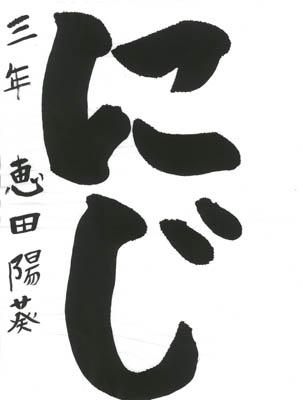 にじ
三年 恵田陽葵